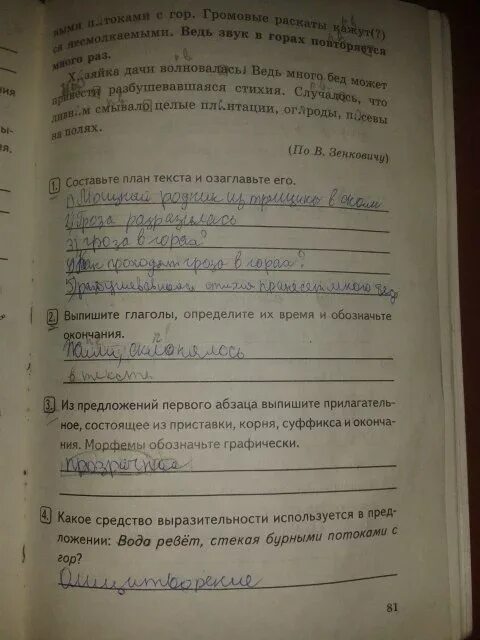 ными п..токами с гор. Громовые раскаты кажут(?)
ся несмолкаемыми. Ведь звук в горах повторяется
много раз.
Х..зяйка дачи волновалась. Ведь много бед может
принести разбушевавшаяся стихия. Случалось, что
ливн..м смывало целые пл..нтации, ог..роды, п..севы
на полях.
(По В. Зенковичу)
1. Составьте план текста и озаглавьте его.
1) Мощный родник из трещины в скале
2) Гроза разразилась
3) гроза в горах?
4) Как проходят гроза в горах?
5) разбушевавшаяся стихия принесет много бед
2. Выпишите глаголы, определите их время и обозначьте
окончания.
склонялось
в тексте
3. Из предложений первого абзаца выпишите прилагатель-
ное, состоящее из приставки, корня, суффикса и оконча-
ния. Морфемы обозначьте графически.
прозрачная
4. Какое средство выразительности используется в пред-
ложении: Вода ревёт, стекая бурными потоками с
гор?
Олицитворение
81